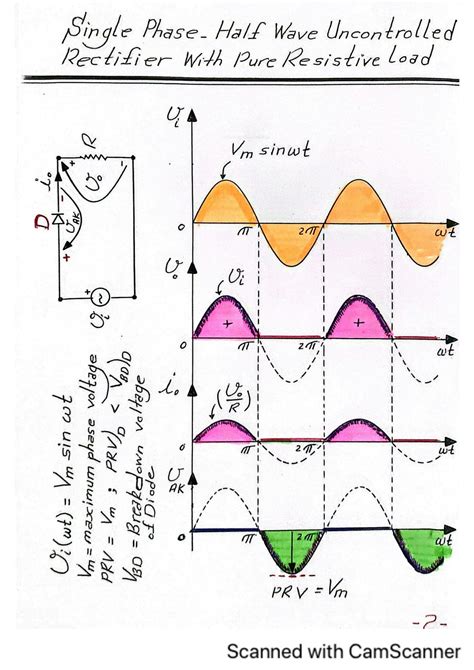 Single Phase - Half Wave Uncontrolled
Rectifier With Pure Resistive Load
R
i₀
+ v₀ -
D
- v_AK +
+
v_i
v_i
V_m sin ωt
0 π 2π ωt
v₀
v_i
+ +
0 π 2π ωt
i₀
(v₀/R)
0 π 2π ωt
v_AK
0 π 2π ωt
PRV = V_m
v_i(ωt) = V_m sin ωt
V_m = maximum phase voltage
PRV = V_m ; PRV)_D < V_BD)_D
V_BD = Breakdown voltage
of Diode
-2-
Scanned with CamScanner